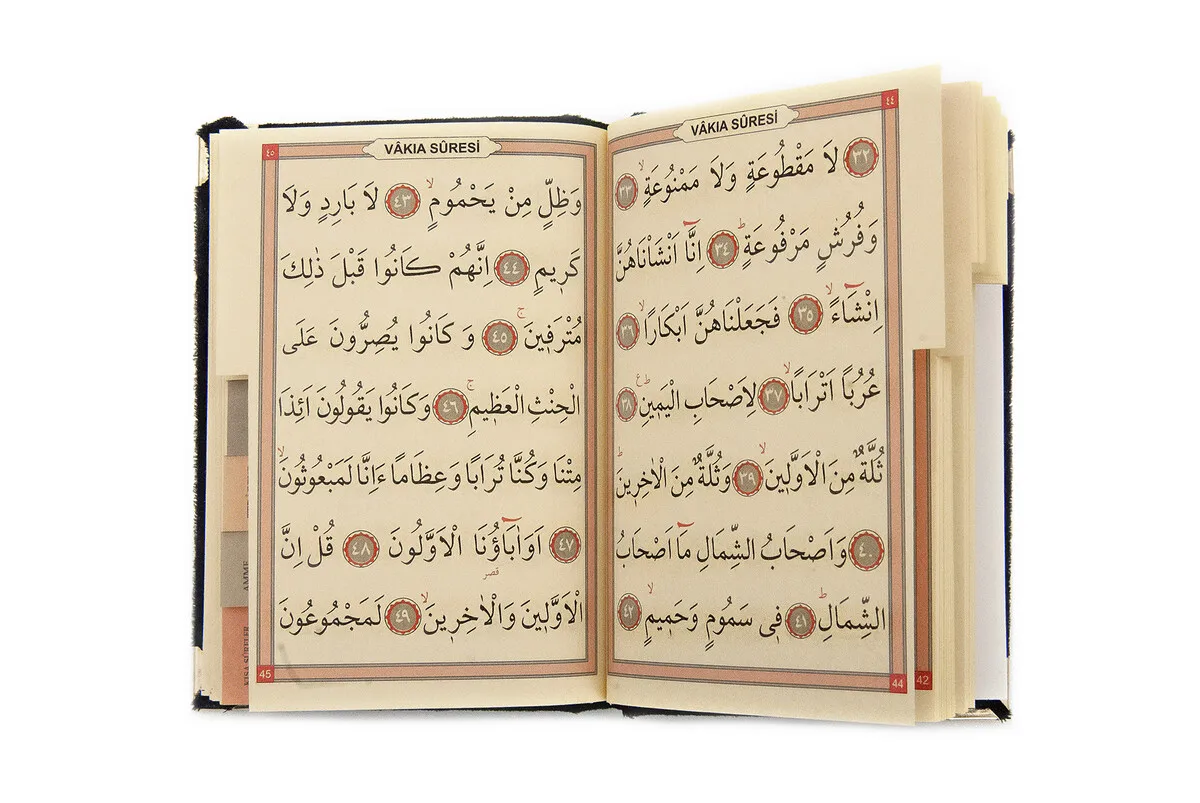 ٤٤
VÂKIA SÛRESİ
٣٢ لَا مَقْطُوعَةٍ وَلَا مَمْنُوعَةٍۙ ٣٣
وَفُرُشٍ مَرْفُوعَةٍۜ ٣٤ اِنَّٓا اَنْشَأْنَاهُنَّ
اِنْشَٓاءًۙ ٣٥ فَجَعَلْنَاهُنَّ اَبْكَارًاۙ ٣٦
عُرُبًا اَتْرَابًاۙ ٣٧ لِاَصْحَابِ الْيَم۪ينِۜ ٣٨
ثُلَّةٌ مِنَ الْاَوَّل۪ينَۙ ٣٩ وَثُلَّةٌ مِنَ الْاٰخِر۪ينَۜ
٤٠ وَاَصْحَابُ الشِّمَالِ مَٓا اَصْحَابُ
الشِّمَالِۜ ٤١ ف۪ي سَمُومٍ وَحَم۪يمٍۙ ٤٢
44
42
٤٥
VÂKIA SÛRESİ
وَظِلٍّ مِنْ يَحْمُومٍۙ ٤٣ لَا بَارِدٍ وَلَا
كَر۪يمٍ ٤٤ اِنَّهُمْ كَانُوا قَبْلَ ذٰلِكَ
مُتْرَف۪ينَۚ ٤٥ وَكَانُوا يُصِرُّونَ عَلَى
الْحِنْثِ الْعَظ۪يمِۚ ٤٦ وَكَانُوا يَقُولُونَ اَئِذَا
مِتْنَا وَكُنَّا تُرَابًا وَعِظَامًا ءَاِنَّا لَمَبْعُوثُونَۙ
٤٧ اَوَاٰبَٓاؤُ۬نَا الْاَوَّلُونَ ٤٨ قُلْ اِنَّ
قصر
الْاَوَّل۪ينَ وَالْاٰخِر۪ينَۙ ٤٩ لَمَجْمُوعُونَ
45
AMME
KISA SÛRELER